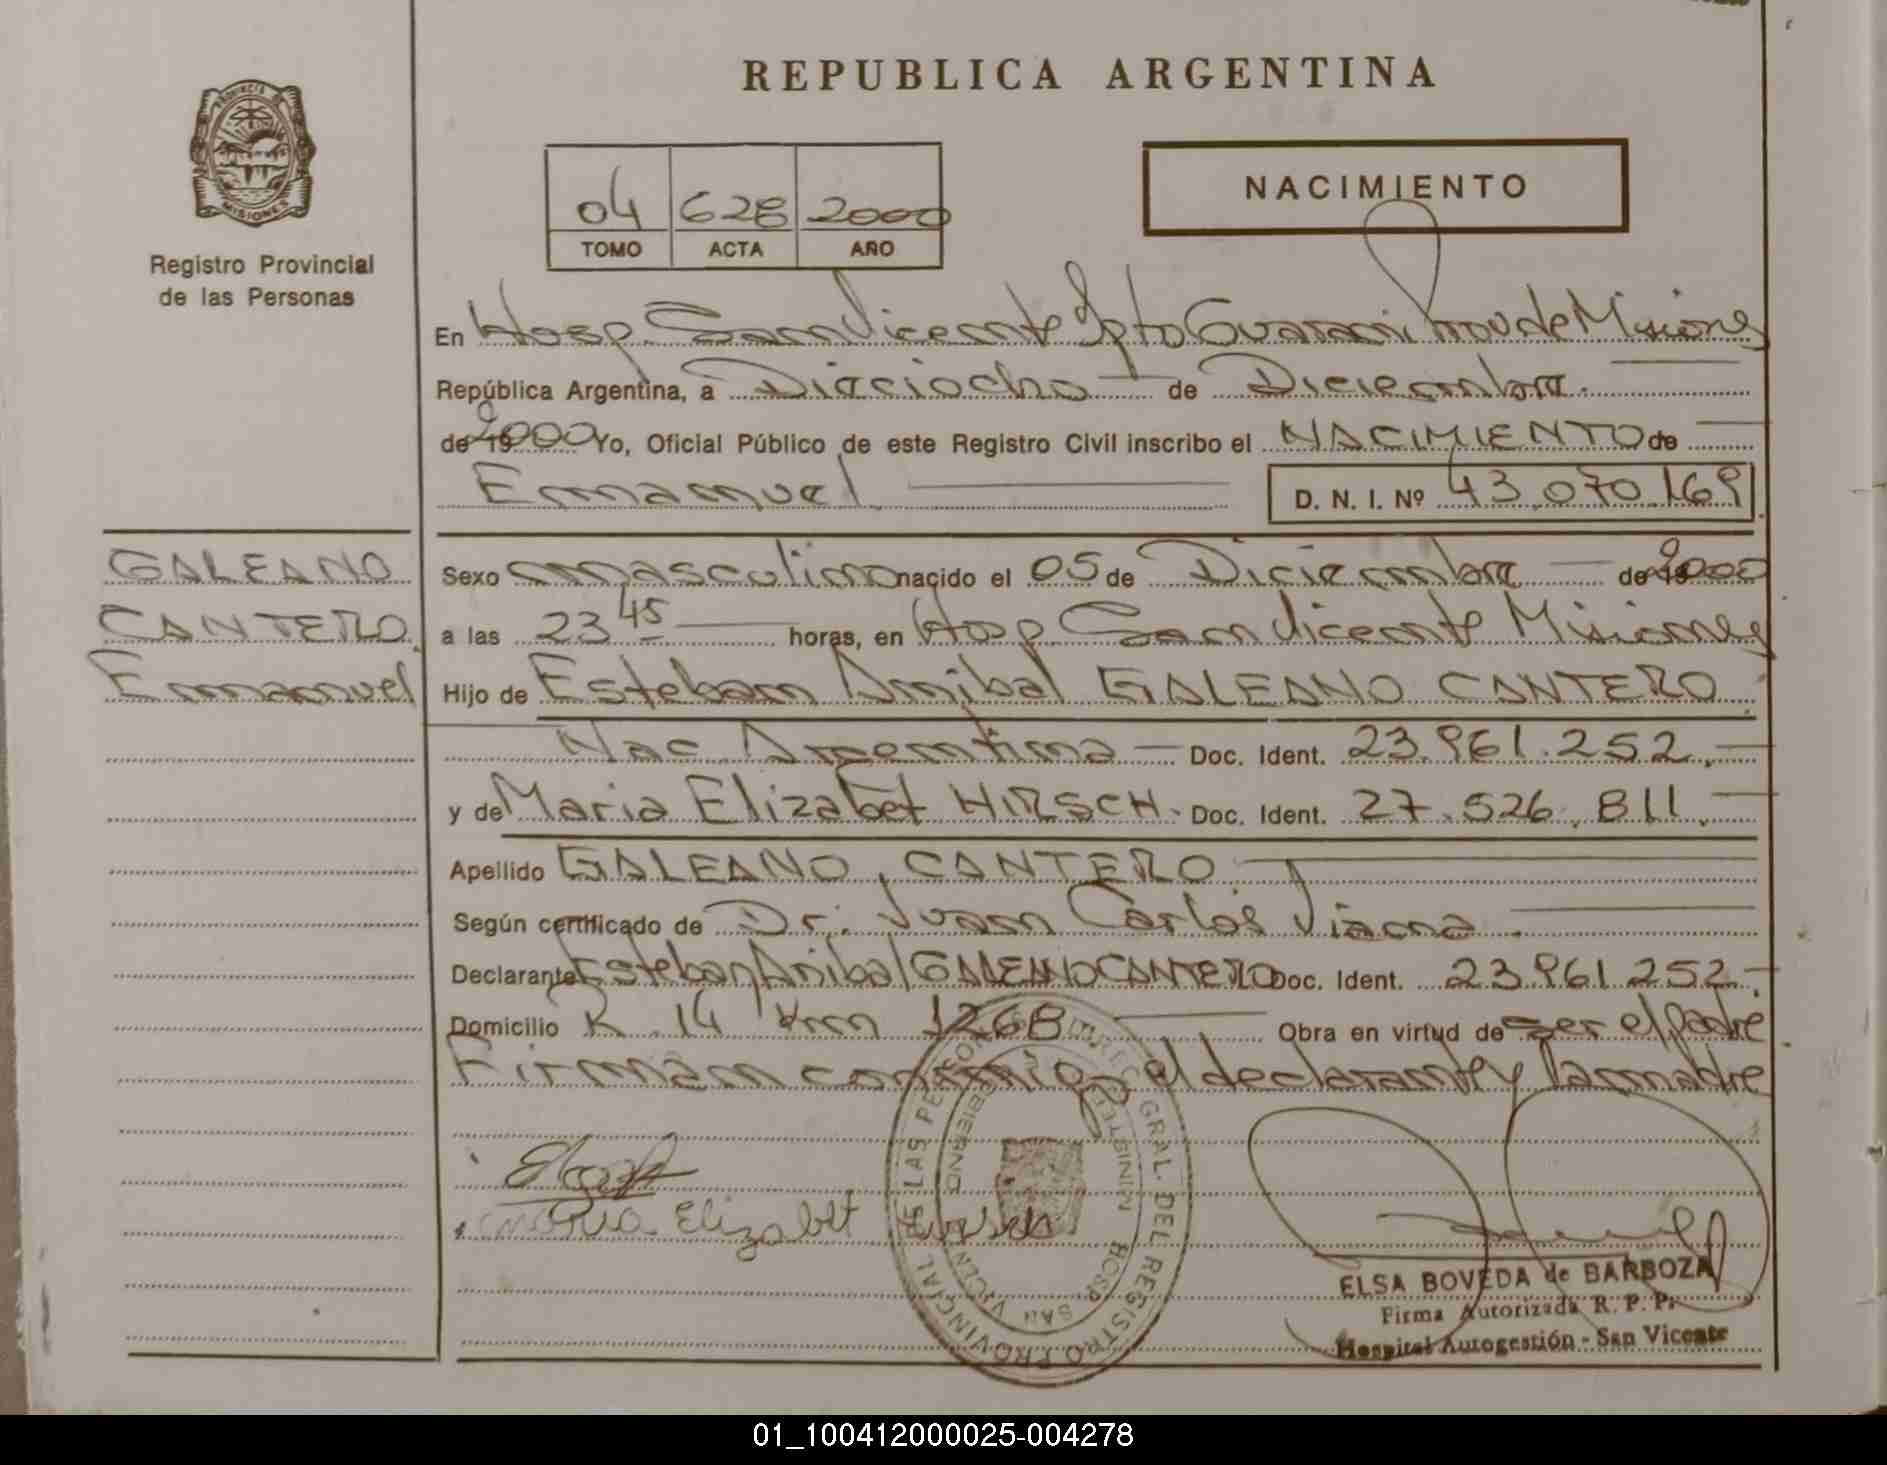 REPUBLICA ARGENTINA
PROVINCIA DE
MISIONES
Registro Provincial
de las Personas
04 628 2000
TOMO ACTA AÑO
NACIMIENTO
En Hosp. San Vicente Dpto Guarani Prov de Misiones
República Argentina, a Dieciocho de Diciembre.
de 19 2000 Yo, Oficial Público de este Registro Civil inscribo el NACIMIENTO de
Emmanuel D. N. I. Nº 43.070.169
GALEANO
CANTERO
Emmanuel
Sexo masculino nacido el 05 de Diciembre de 19 2000
a las 23 45 horas, en Hosp. San Vicente Misiones
Hijo de Esteban Anibal GALEANO CANTERO
Nac. Argentina Doc. Ident. 23.961.252.
y de Maria Elizabet HIRSCH. Doc. Ident. 27.526.811.
Apellido GALEANO CANTERO.
Según certificado de Dr. Juan Carlos Viana
Declarante Esteban Anibal GALEANO CANTERO Doc. Ident. 23.961.252.
Domicilio R. 14 Km 1268 Obra en virtud de ser el padre
Firman conmigo el declarante y la madre
Maria Elizabet Hirsch
REGISTRO PROVINCIAL DE LAS PERSONAS
HOSP. SAN VICENTE
ELSA BOVEDA de BARBOZA
Firma Autorizada R. P. P.
Hospital Autogestión - San Vicente
01_100412000025-004278